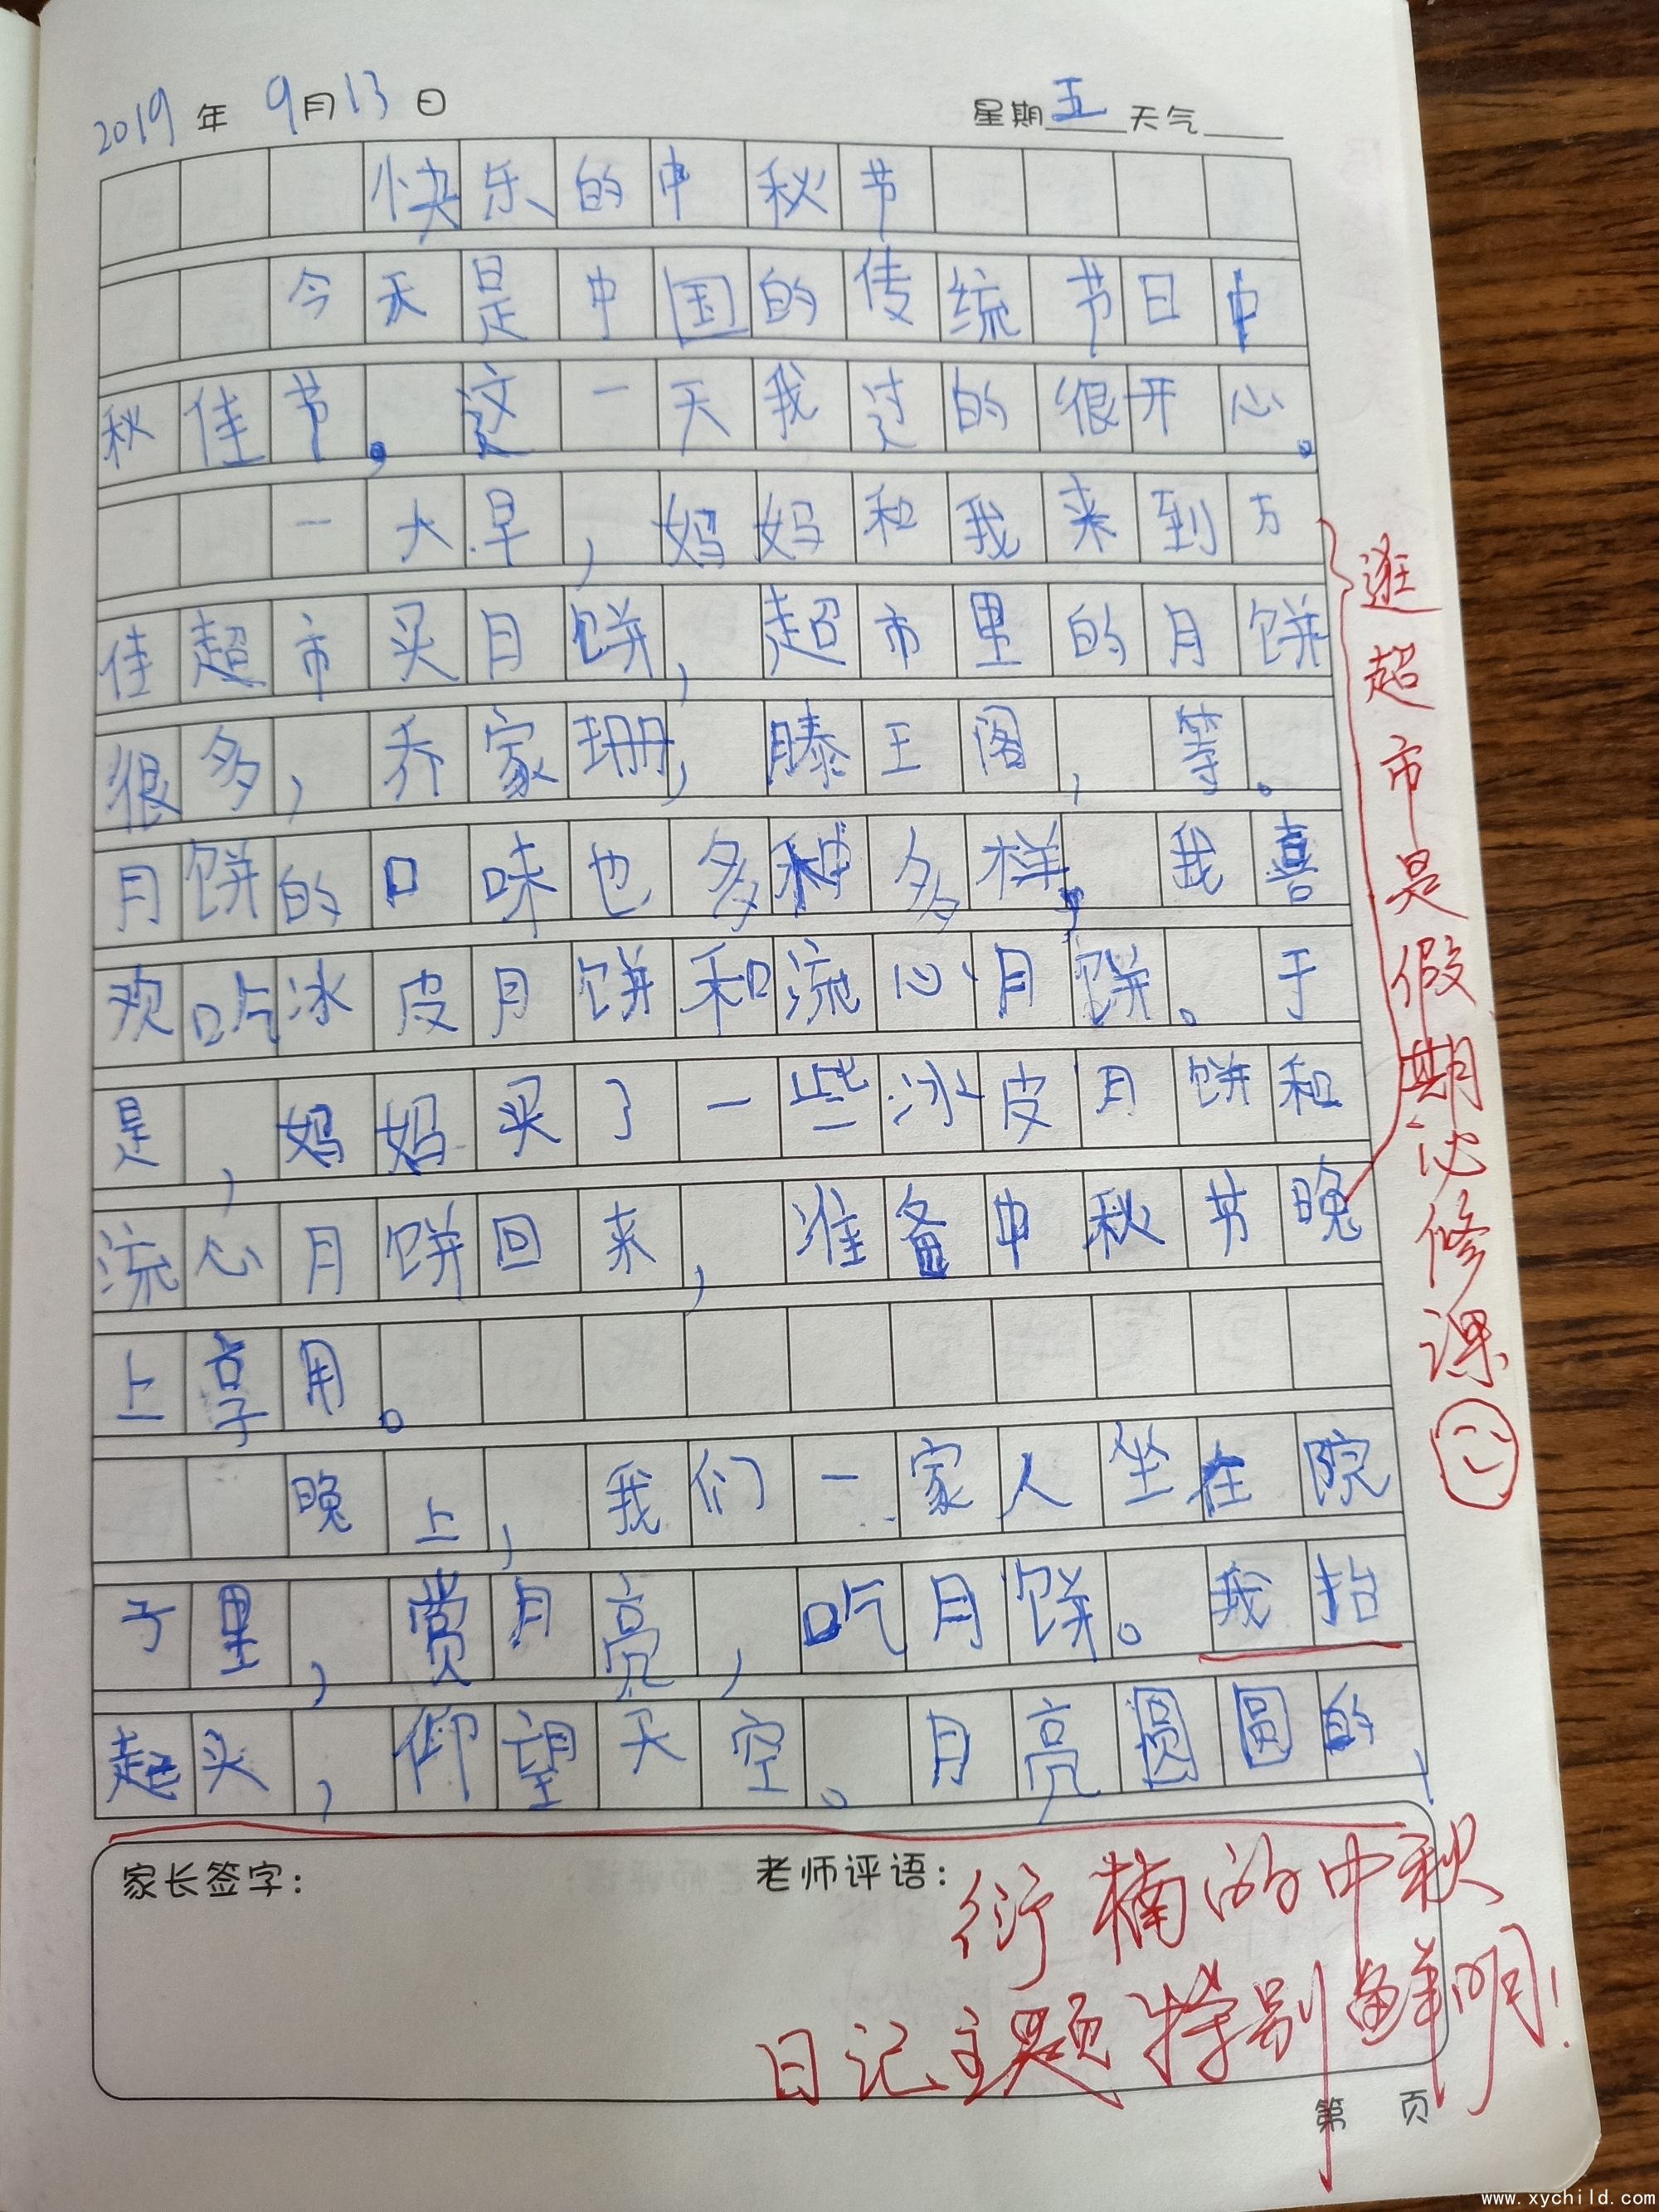 2019年 9月13日 星期五 天气
快乐的中秋节
今天是中国的传统节日中
秋佳节。这一天我过的很开心。
一大早,妈妈和我来到万
佳超市买月饼,超市里的月饼
很多,乔家珊,滕王阁,等。
月饼的口味也多种多样,我喜
欢吃冰皮月饼和流心月饼。于
是,妈妈买了一些冰皮月饼和
流心月饼回来,准备中秋节晚
上享用。
晚上,我们一家人坐在院
子里,赏月亮,吃月饼。我抬
起头,仰望天空。月亮圆圆的,
逛超市是假期必修课
家长签字: 老师评语:衍楠的中秋
日记主题特别鲜明!
第 页
www.xychild.com